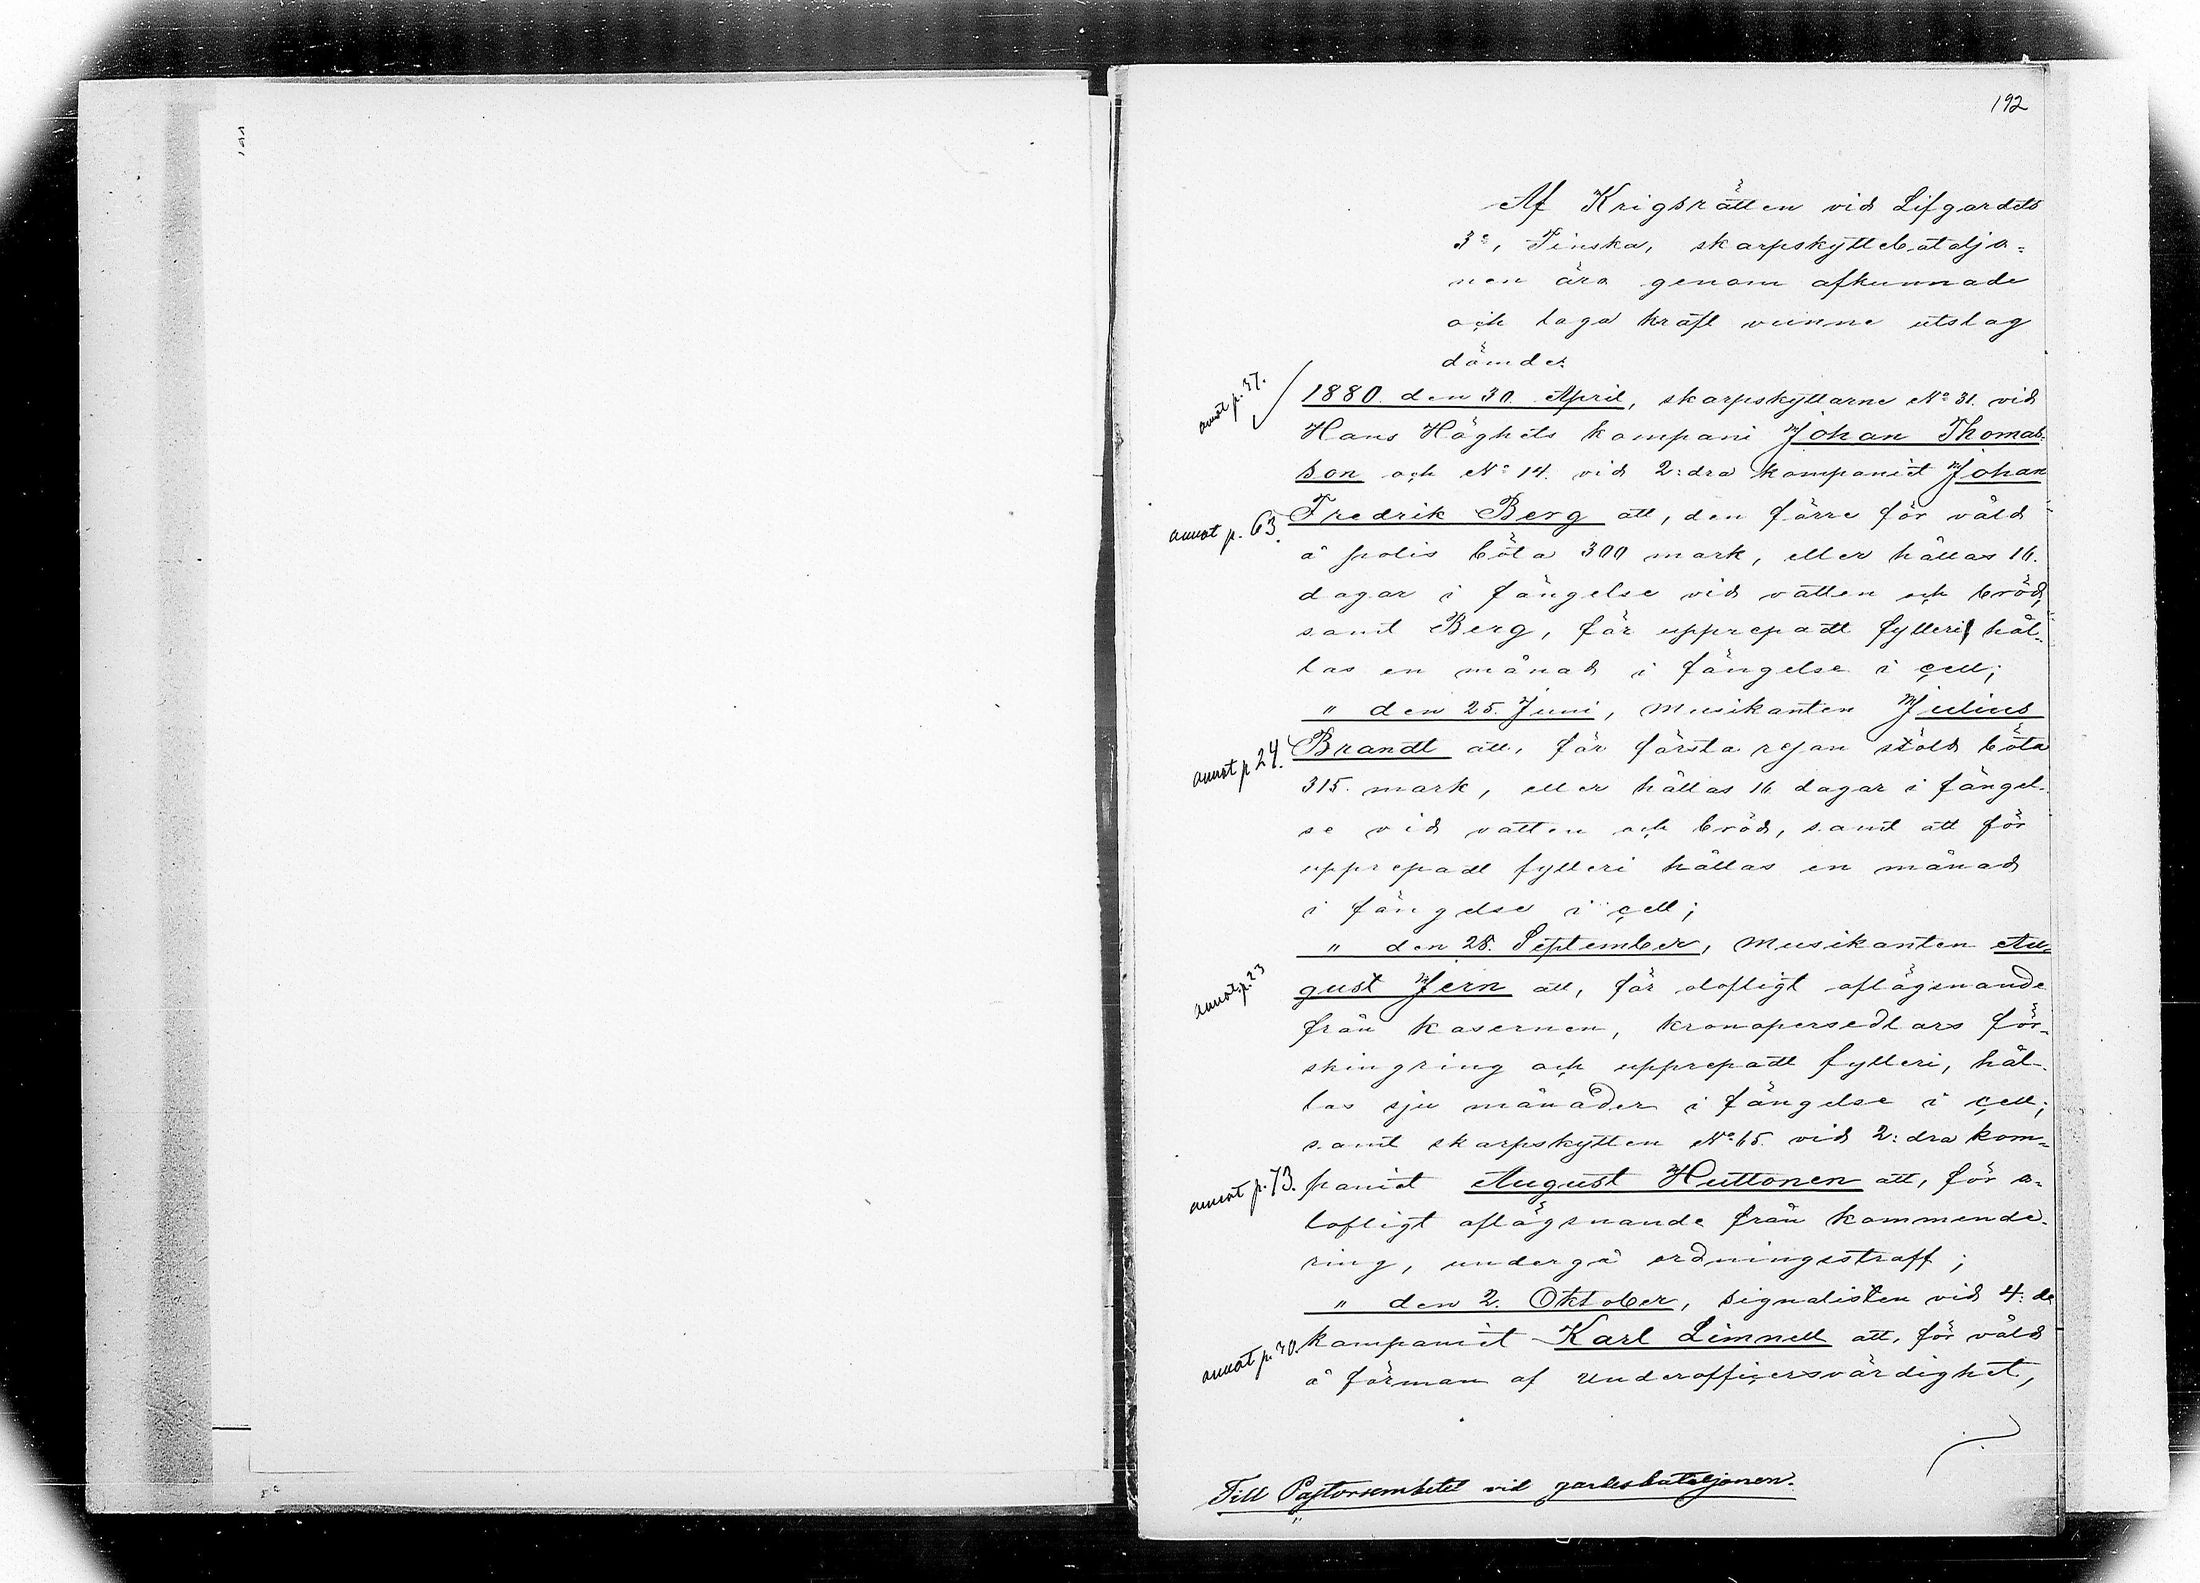 192
Af Krigsrätten vid Lifgardets
3e, Finska, skarpskyttebataljo=
nen äro genom afkunnade
och laga kraft vunne utslag
dömde:
annot p. 37.
1880. den 30. April, skarpskyttarne No 31. vid
Hans Höghets kompani Johan Thomas-
son och No 14. vid 2:dra kompaniet Johan
annot p. 63.
Fredrik Berg att, den förre för våld
å polis böta 300 mark, eller hållas 16.
dagar i fängelse vid vatten och bröd,
samt Berg, för upprepadt fylleri hål-
las en månad i fängelse i cell;
" den 25. Juni, musikanten Julius
annot p 24.
Brandt att, för första resan stöld böta
315. mark, eller hållas 16 dagar i fängel-
se vid vatten och bröd, samt att för
upprepadt fylleri hållas en månad
i fängelse i cell;
" den 28. September, musikanten Au=
annot. p. 23
gust Jern att, för olofligt aflägsnande
från kasernen, kronopersedlars för=
skingring och upprepadt fylleri, hål-
las sju månader i fängelse i cell;
samt skarpskytten No 65. vid 2:dra kom=
annot p. 73.
paniet August Huttonen att, för o=
lofligt aflägsnande från kommende-
ring, undergå ordningsstraff;
" den 2. Oktober, signalisten vid 4:de
annot p. 70.
kompaniet Karl Limnell att, för våld
å förman af underofficersvärdighet,
Till Pastorsembetet vid gardesbataljonen.